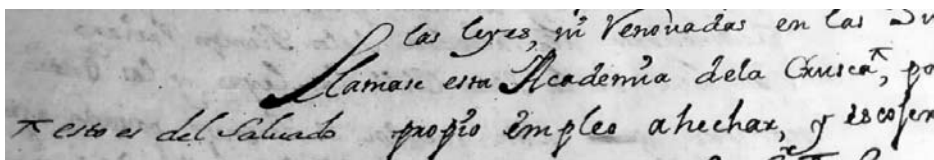 las leyes, ni Renovadas en las
Llamase esta Academia dela Crusca ⊼, po
⊼ esto es del Salvado propio empleo ahechar, y escojer